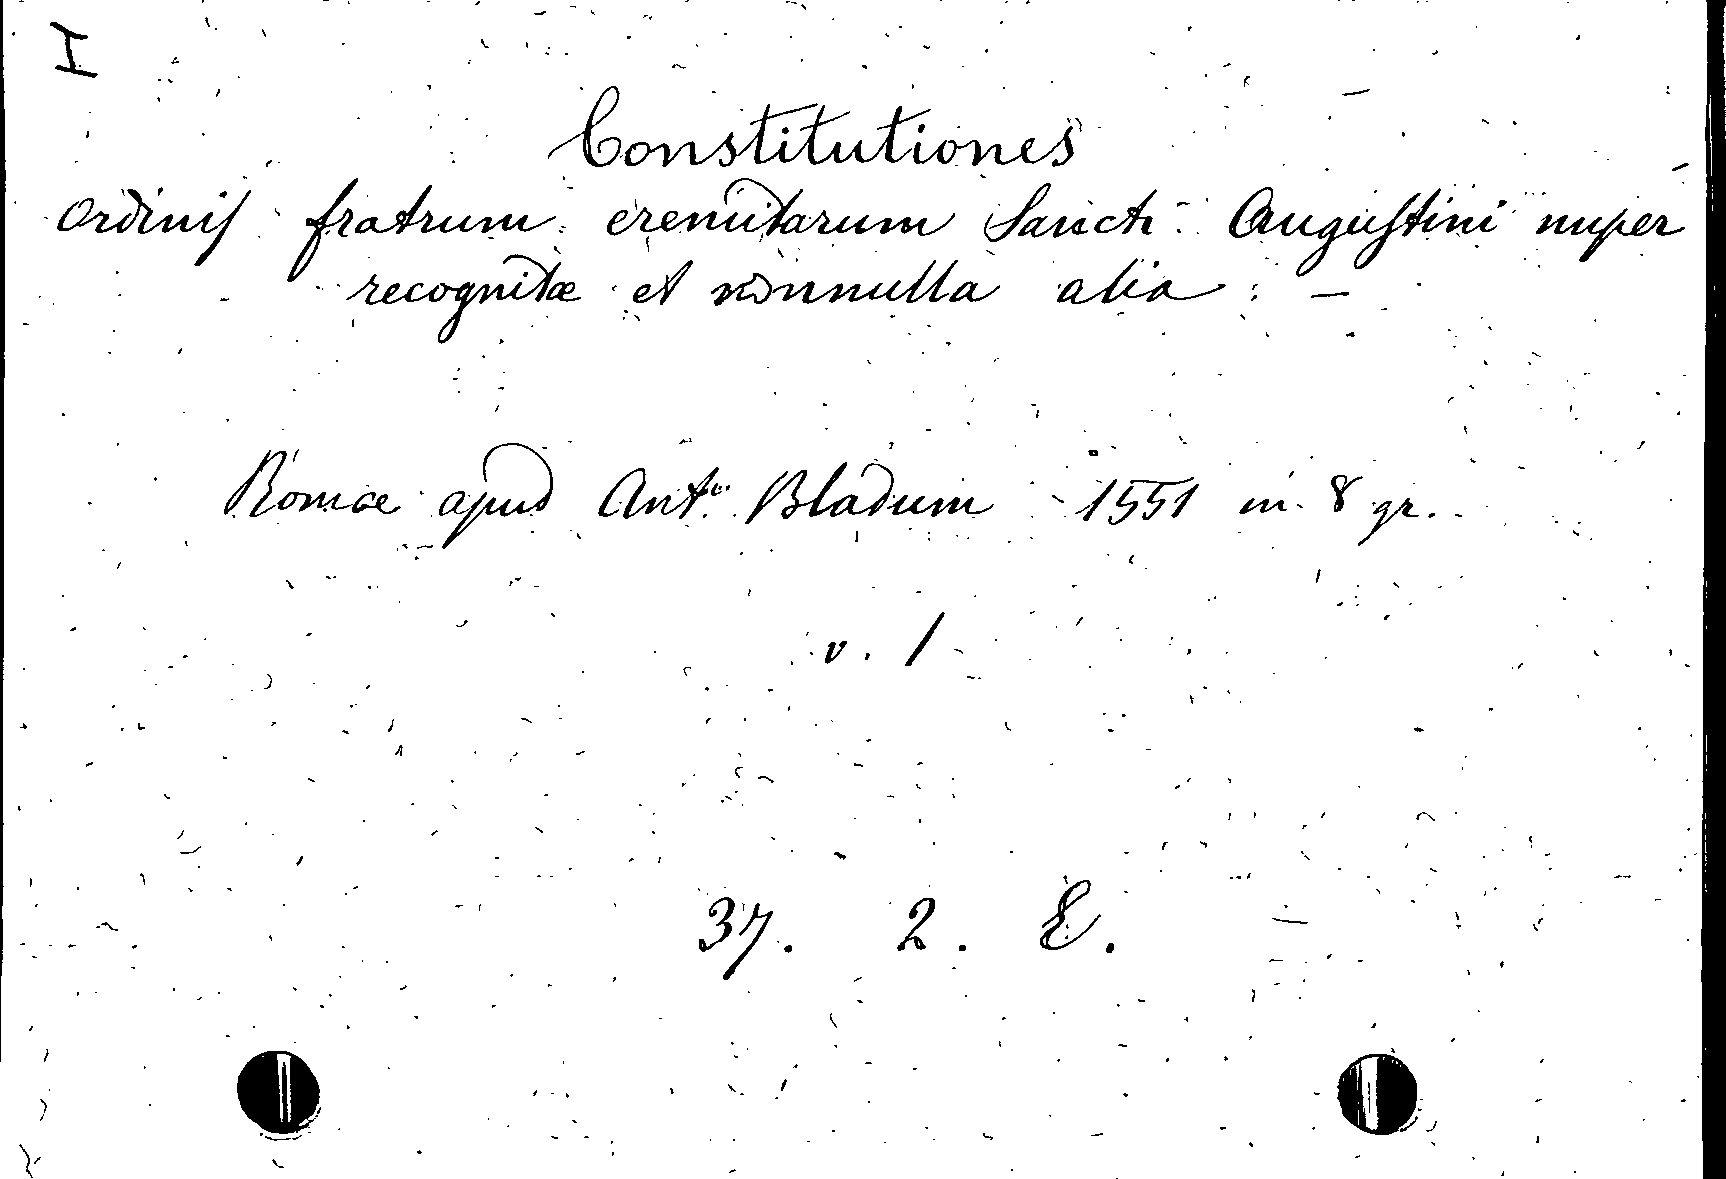 I
Constitutiones
ordinis fratrum eremitarum Sancti Augustini nuper
recognitæ et nonnulla alia : —
Romæ apud Ant.um Bladum 1551 in 8 gr.
v. 1
37. 2. E.